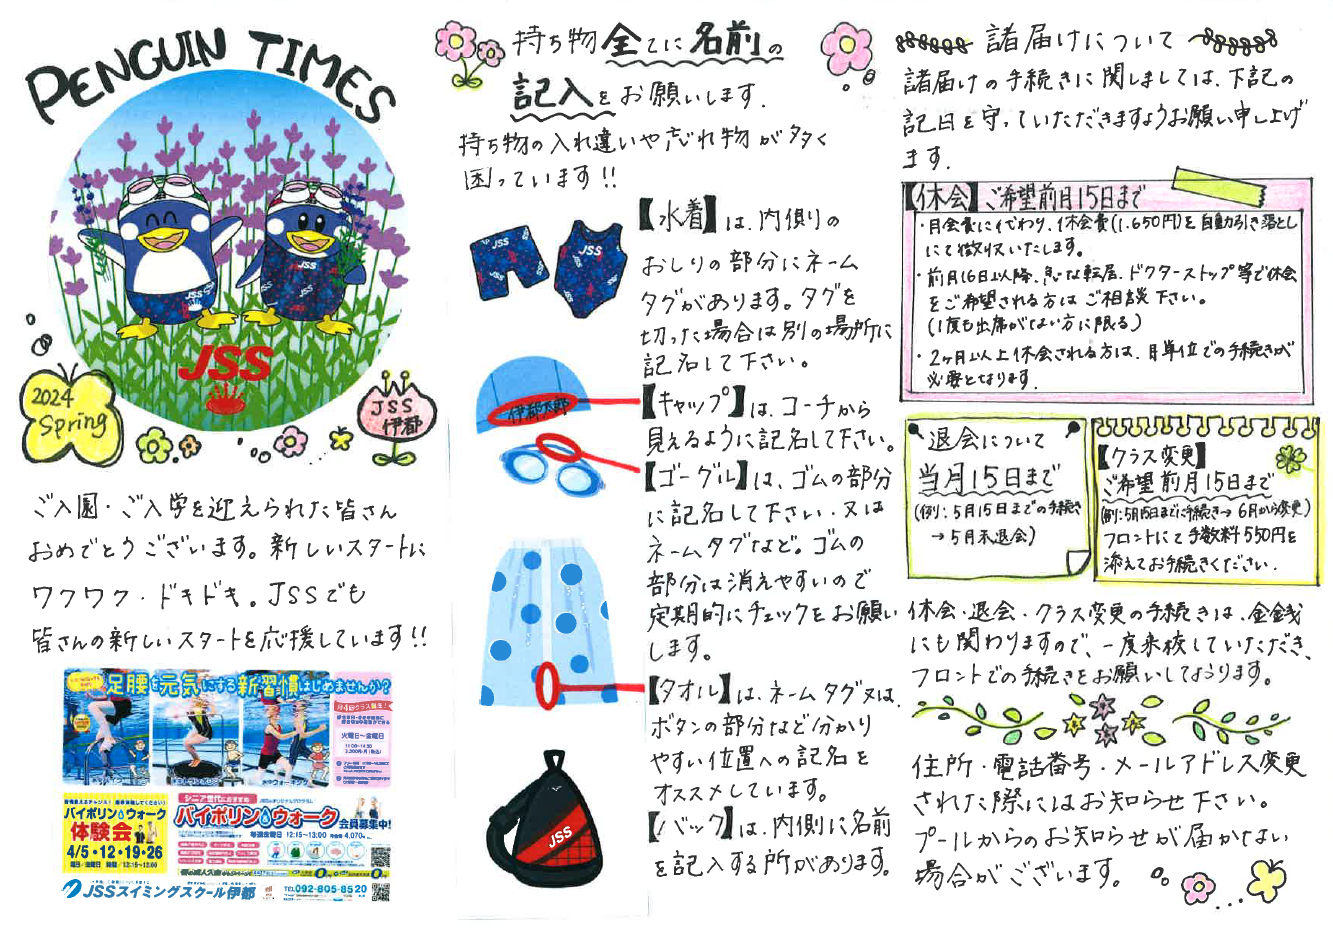 PENGUIN TIMES
JSS
JSS
JSS
2024
Spring
JSS
伊都
ご入園・ご入学を迎えられた皆さん
おめでとうございます。新しいスタートに
ワクワク・ドキドキ。JSSでも
皆さんの新しいスタートを応援しています!!
足腰も元気にする新習慣はじめませんか?
火曜日～金曜日
シニア世代におすすめ
バイポリン・ウォーク
体験会
4/5・12・19・26
バイポリンウォーク
会員募集中!
毎週金曜日 12:15～13:00
JSSスイミングスクール伊都
TEL 092-805-8520
持ち物全てに名前の
記入をお願いします.
持ち物の入れ違いや忘れ物が多く
困っています!!
JSS
JSS
【水着】は、内側りの
おしりの部分にネーム
タグがあります。タグを
切った場合は別の場所に
記名して下さい。
伊都太郎
【キャップ】は、コーチから
見えるように記名して下さい。
【ゴーグル】は、ゴムの部分
に記名して下さい.又は
ネームタグなど。ゴムの
部分は消えやすいので
定期的にチェックをお願い
します。
【タオル】は、ネームタグ又は、
ボタンの部分など分かり
やすい位置への記名を
オススメしています。
JSS
【バック】は、内側に名前
を記入する所があります。
諸届けについて
諸届けの手続きに関しましては、下記の
記日を守っていただきますようお願い申し上げ
ます.
【休会】ご希望前月15日まで
・月会費に代わり、休会費(1.650円)を自動引き落とし
にて徴収いたします。
・前月16日以降、急な転居、ドクターストップ等で休会
をご希望される方はご相談下さい。
(1度も出席がない方に限る)
・2ヶ月以上休会される方は、月単位での手続きが
必要となります.
退会について
当月15日まで
(例:5月15日までの手続き
→5月末退会)
【クラス変更】
ご希望前月15日まで
(例:5月15日までに手続き→6月から変更)
フロントにて手数料550円を
添えてお手続きください.
休会・退会・クラス変更の手続きは、金銭
にも関わりますので、一度来校していただき、
フロントでの手続きをお願いしております。
住所・電話番号・メールアドレス変更
された際にはお知らせ下さい。
プールからのお知らせが届かない
場合がございます。